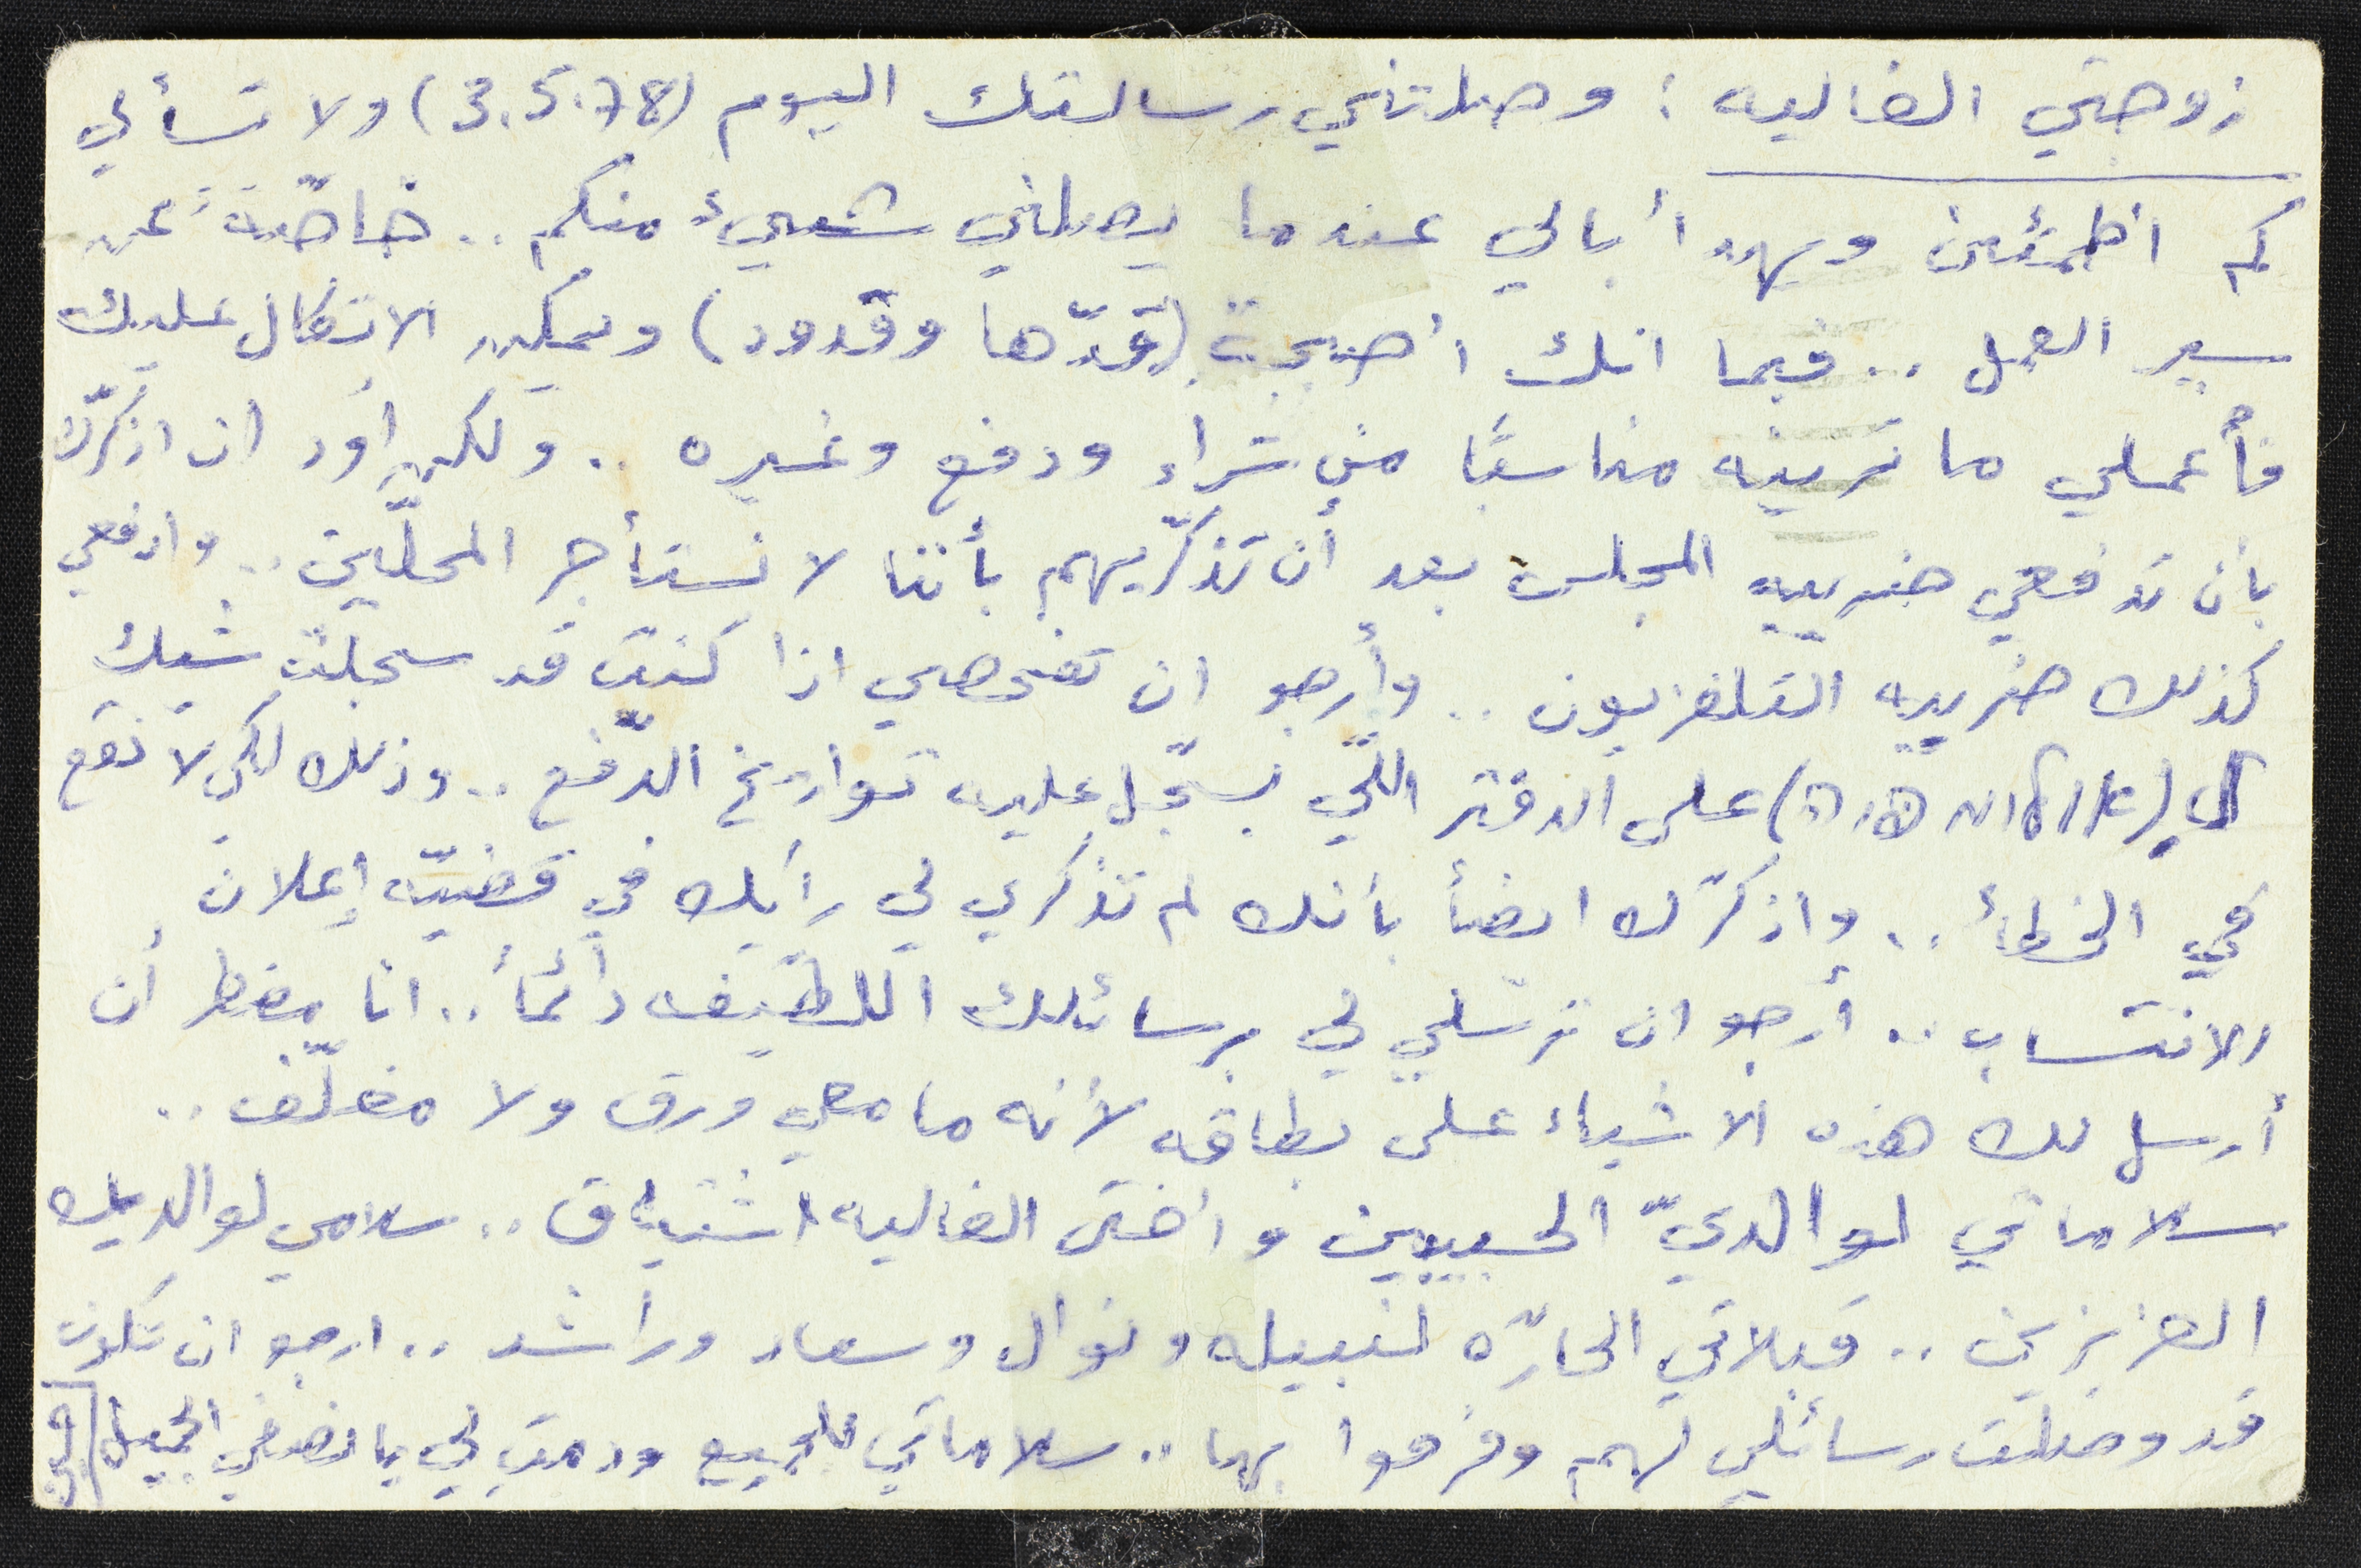 زوجتي الغاليه : وصلتني رسالتك اليوم (3.5.78) ولا تسألي
كم اطمئن ويهدأ بالي عندما يصلني شيئ منكم .. خاصّة عن
سير العمل .. فبما انك اصبحت (قدّها وقدود) ويمكن الاتكال عليك
فأعملي ما ترينه مناسبًا من شراء ودفع وغيره .. ولكن أود ان اذكرّك
بان تدفعي ضريبه المجلس بعد أن تذكرّيهم بأننا لا نستأجر المحلّين .. وادفعي
كذلك ضريبه التلفزيون .. وأرجو ان تفحصي اذا كنت قد سجلت شيك
ال ( ) على الدفتر اللّي بسجّل عليه تواريخ الدّفع .. وذلك لكي لا نقع
في الخطأ .. واذكرّك ايضأ بانك لم تذكري لي رايك في قضيّه إعلان
الانتساب .. أرجو ان ترسلي لي برسائلك اللطيفه دائمأ .. انا مضطر أن
أرسل لك هذه الاشياء على بطاقه لأنه ما معي ورق ولا مغلّف ..
سلاماتي لوالديّ الحبيبين واختى الغاليه اشتياق .. سلامي لوالديك
العزيزين .. قبلاتي الحارّه لنبيله ونوال وسعاد وراشد .. ارجو ان تكون
قد وصلت رسائلي لهم وفرحوا بها .. سلاماتي للجميع ودمت لي يا نصفي الجميل